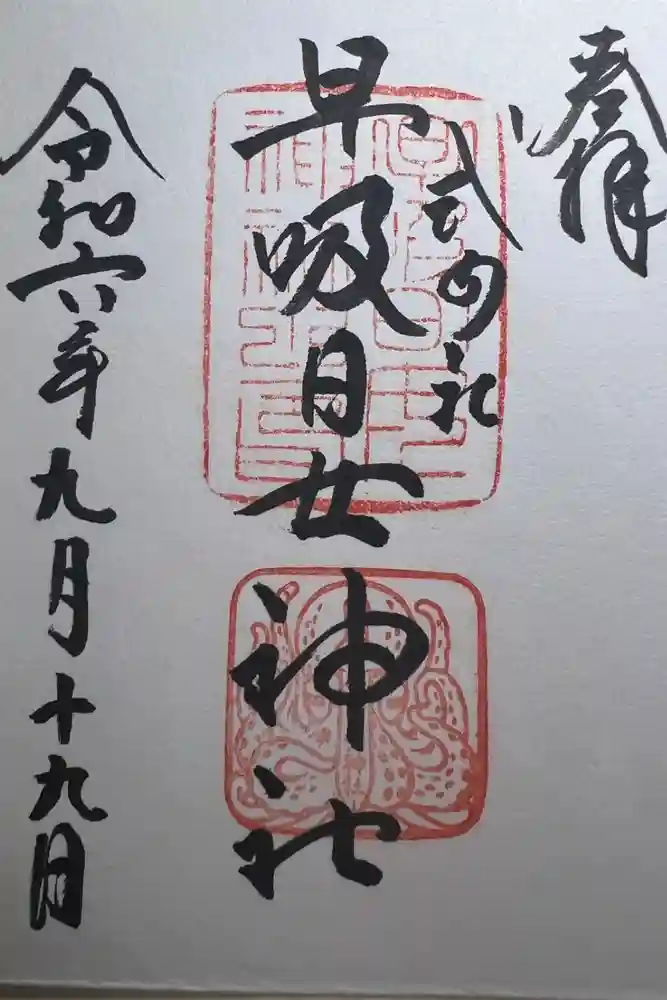 奉拝
式内社
早吸日女神社
令和六年九月十九日